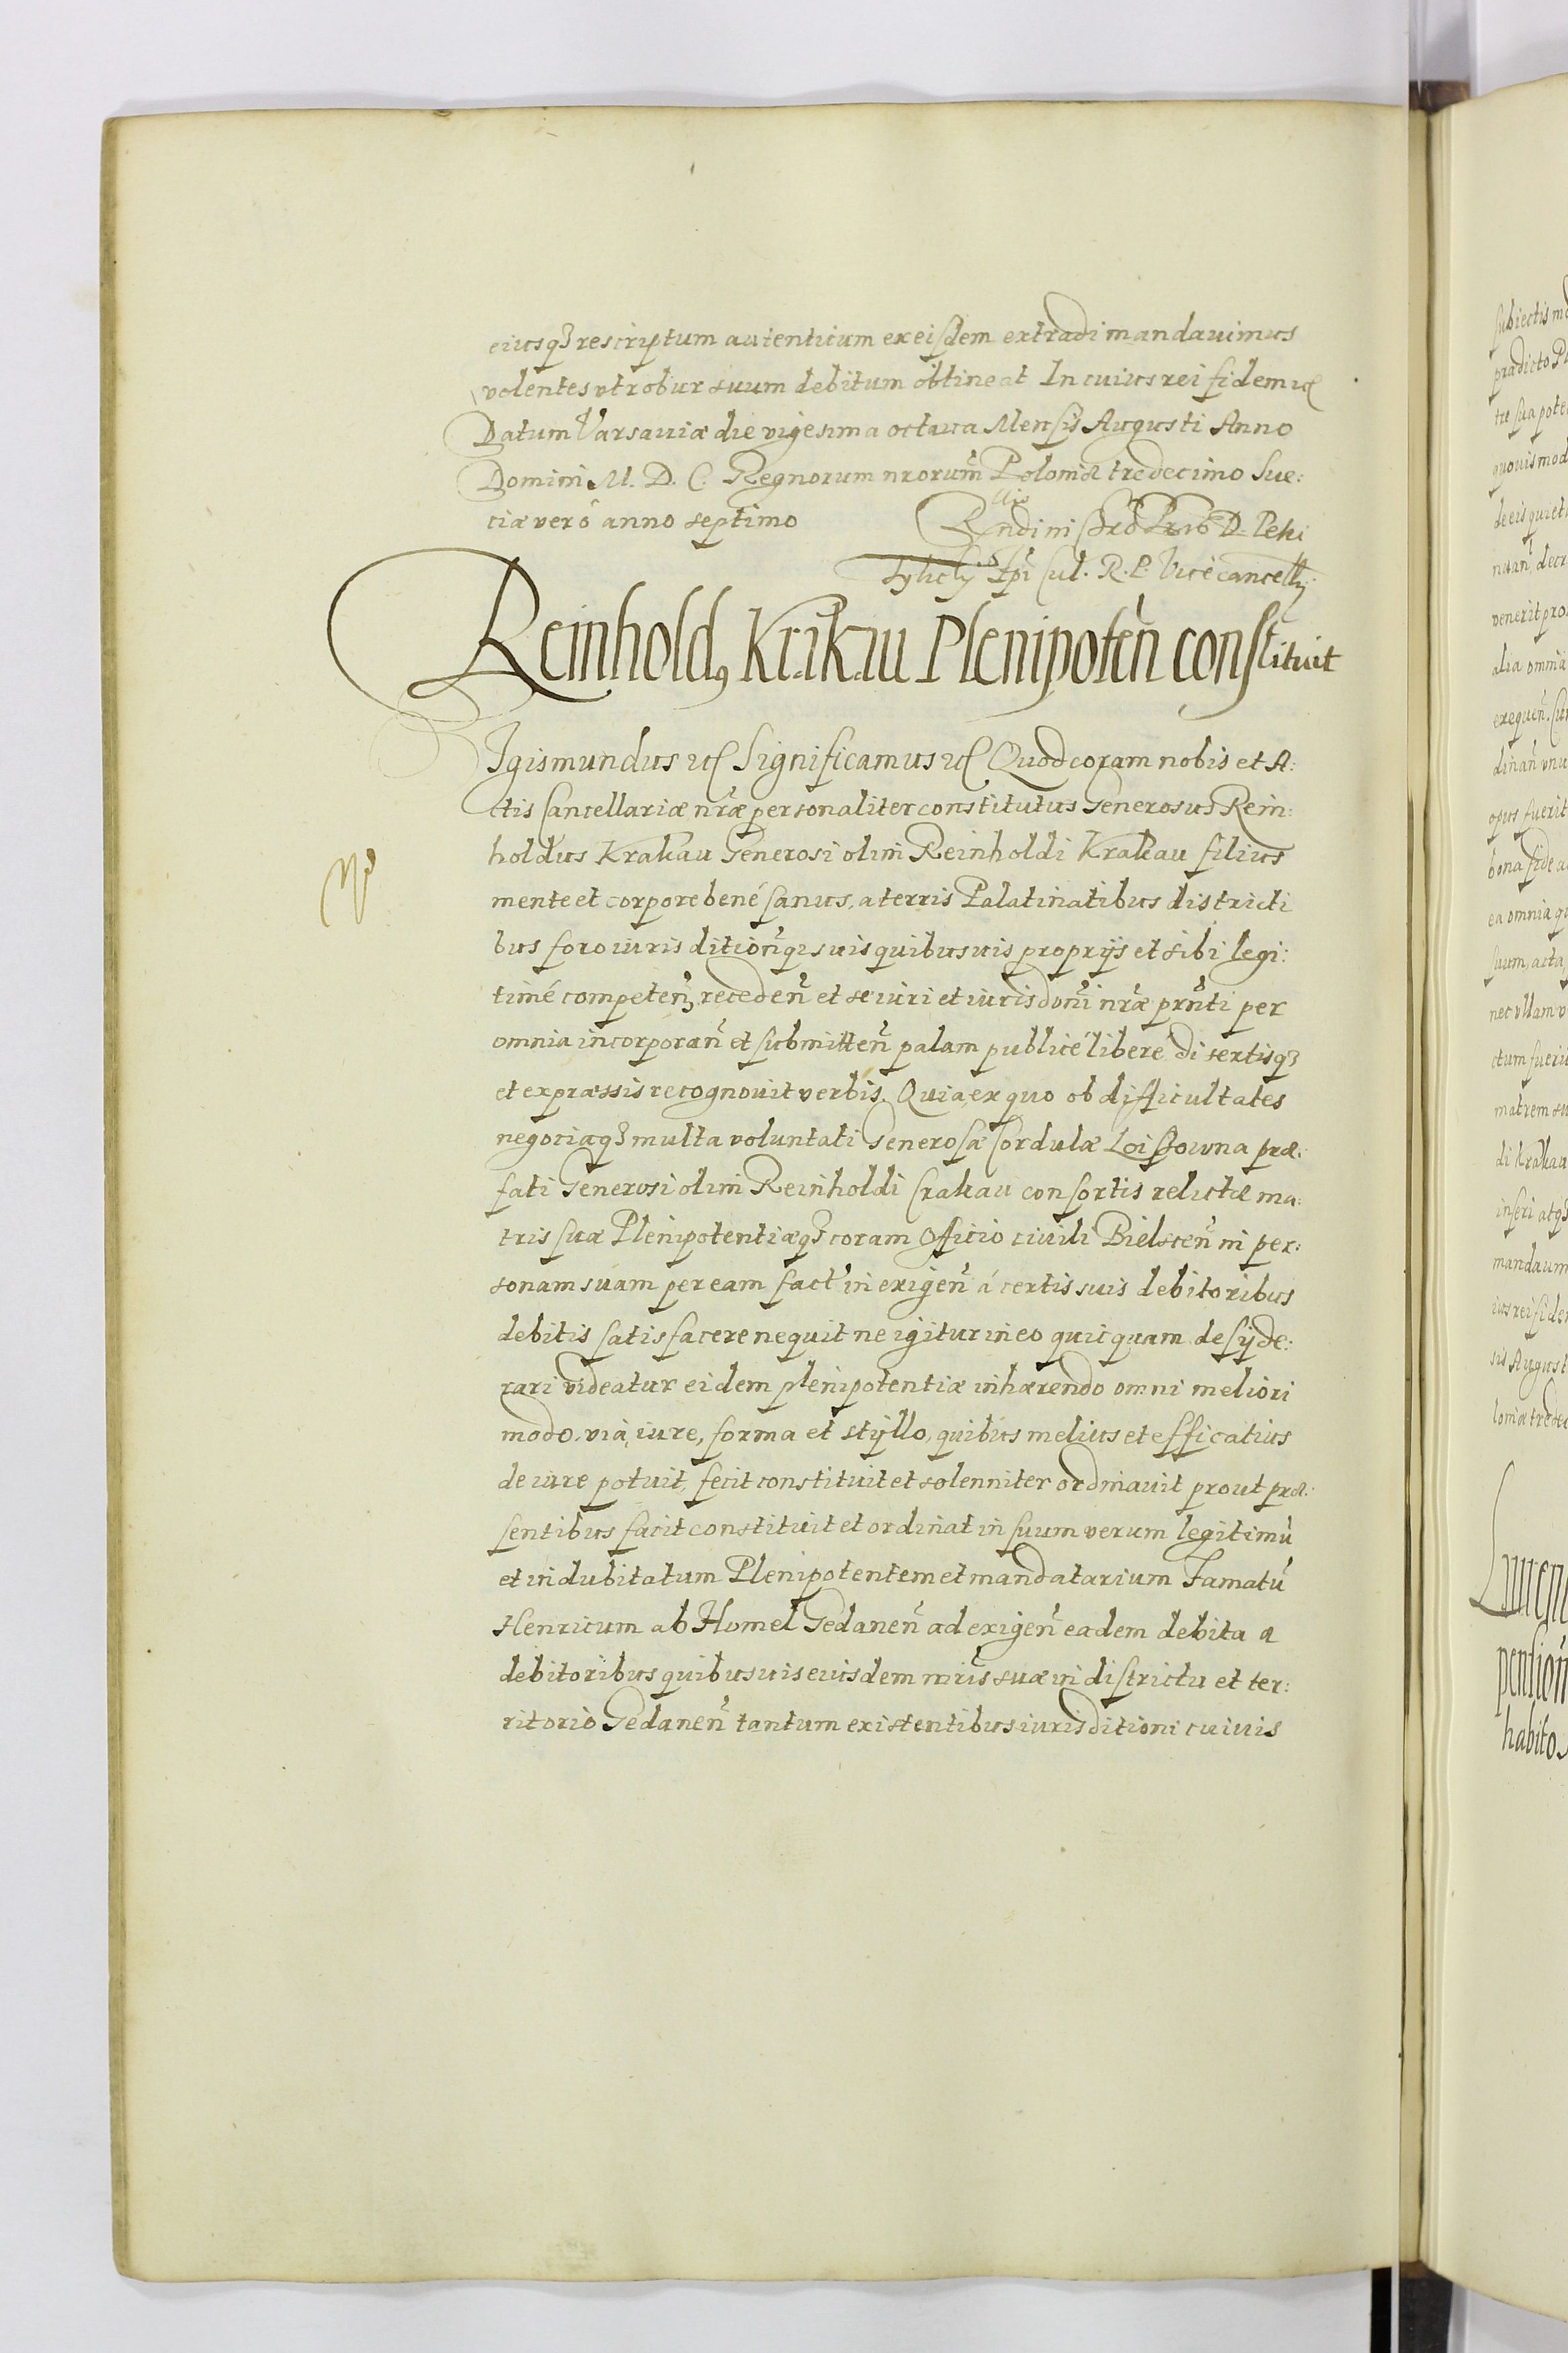 eiusq3 rescriptum autenticum ex eisdem extradi mandauimus
volentes vt robur suum debitum obtineat In cuius rei fidem
Datum Varsauiæ die vigesima octaua Mensis Augusti Anno
Domini M. D. C. Regnorum nrorum Poloniæ tredecimo Sue:
ciæ vero anno septimo
Rndi D. Petri
Tylicky Epi Cul. R. P. Vicecancellÿ
Reinhold9 Krakau Plenipoten constituit
Igismundus Significamus Quod coram nobis et A:
ctis Cancellariæ nræ personaliter constitutus Generosus Rein:
holdus Krakau Generosi olim Reinholdi Krakau filius
mente et corpore bené sanus, a terris Palatinatibus districti
bus foro iurisdition̄q3 suis quibusuis proprijs et sibi legi:
timé competen̄, receden̄ et se iuri et iurisdoni nræ prnti per
omnia incorporan̄ et submitten̄ palam publicé libere disertisq3
et expræssis recognouit verbis. Quia ex quo ob difficultates
negociaq3 multa voluntati Generosæ Cordulæ præ:
fati Generosi olim Reinholdi Crakau consortis relictæ ma:
tris suæ Plenipotentiæq3 coram Officio ciuili Bielscen̄ in per:
sonam suam per eam fact in exigen̄ á certis suis debitoribus
debitis satisfacere nequit ne igitur in eo quicquam desÿde:
rari videatur eidem plenipotentiæ inhærendo omni meliori
modo, via, iure, forma et stÿllo, quibus melius et efficatius
de iure potuit, fecit constituit et solenniter ordinauit prout præ:
sentibus facit constituit et ordinat in suum verum legitimu
et indubitatum Plenipotentem et mandatarium Famatu
Henricum ab Homel Gedanen̄ ad exigen̄ eadem debita a
debitoribus quibusuis eiusdem mris suæ in districtu et ter:
ritorio Gedanen̄ tantum existentibus iurisditioni cuiuis